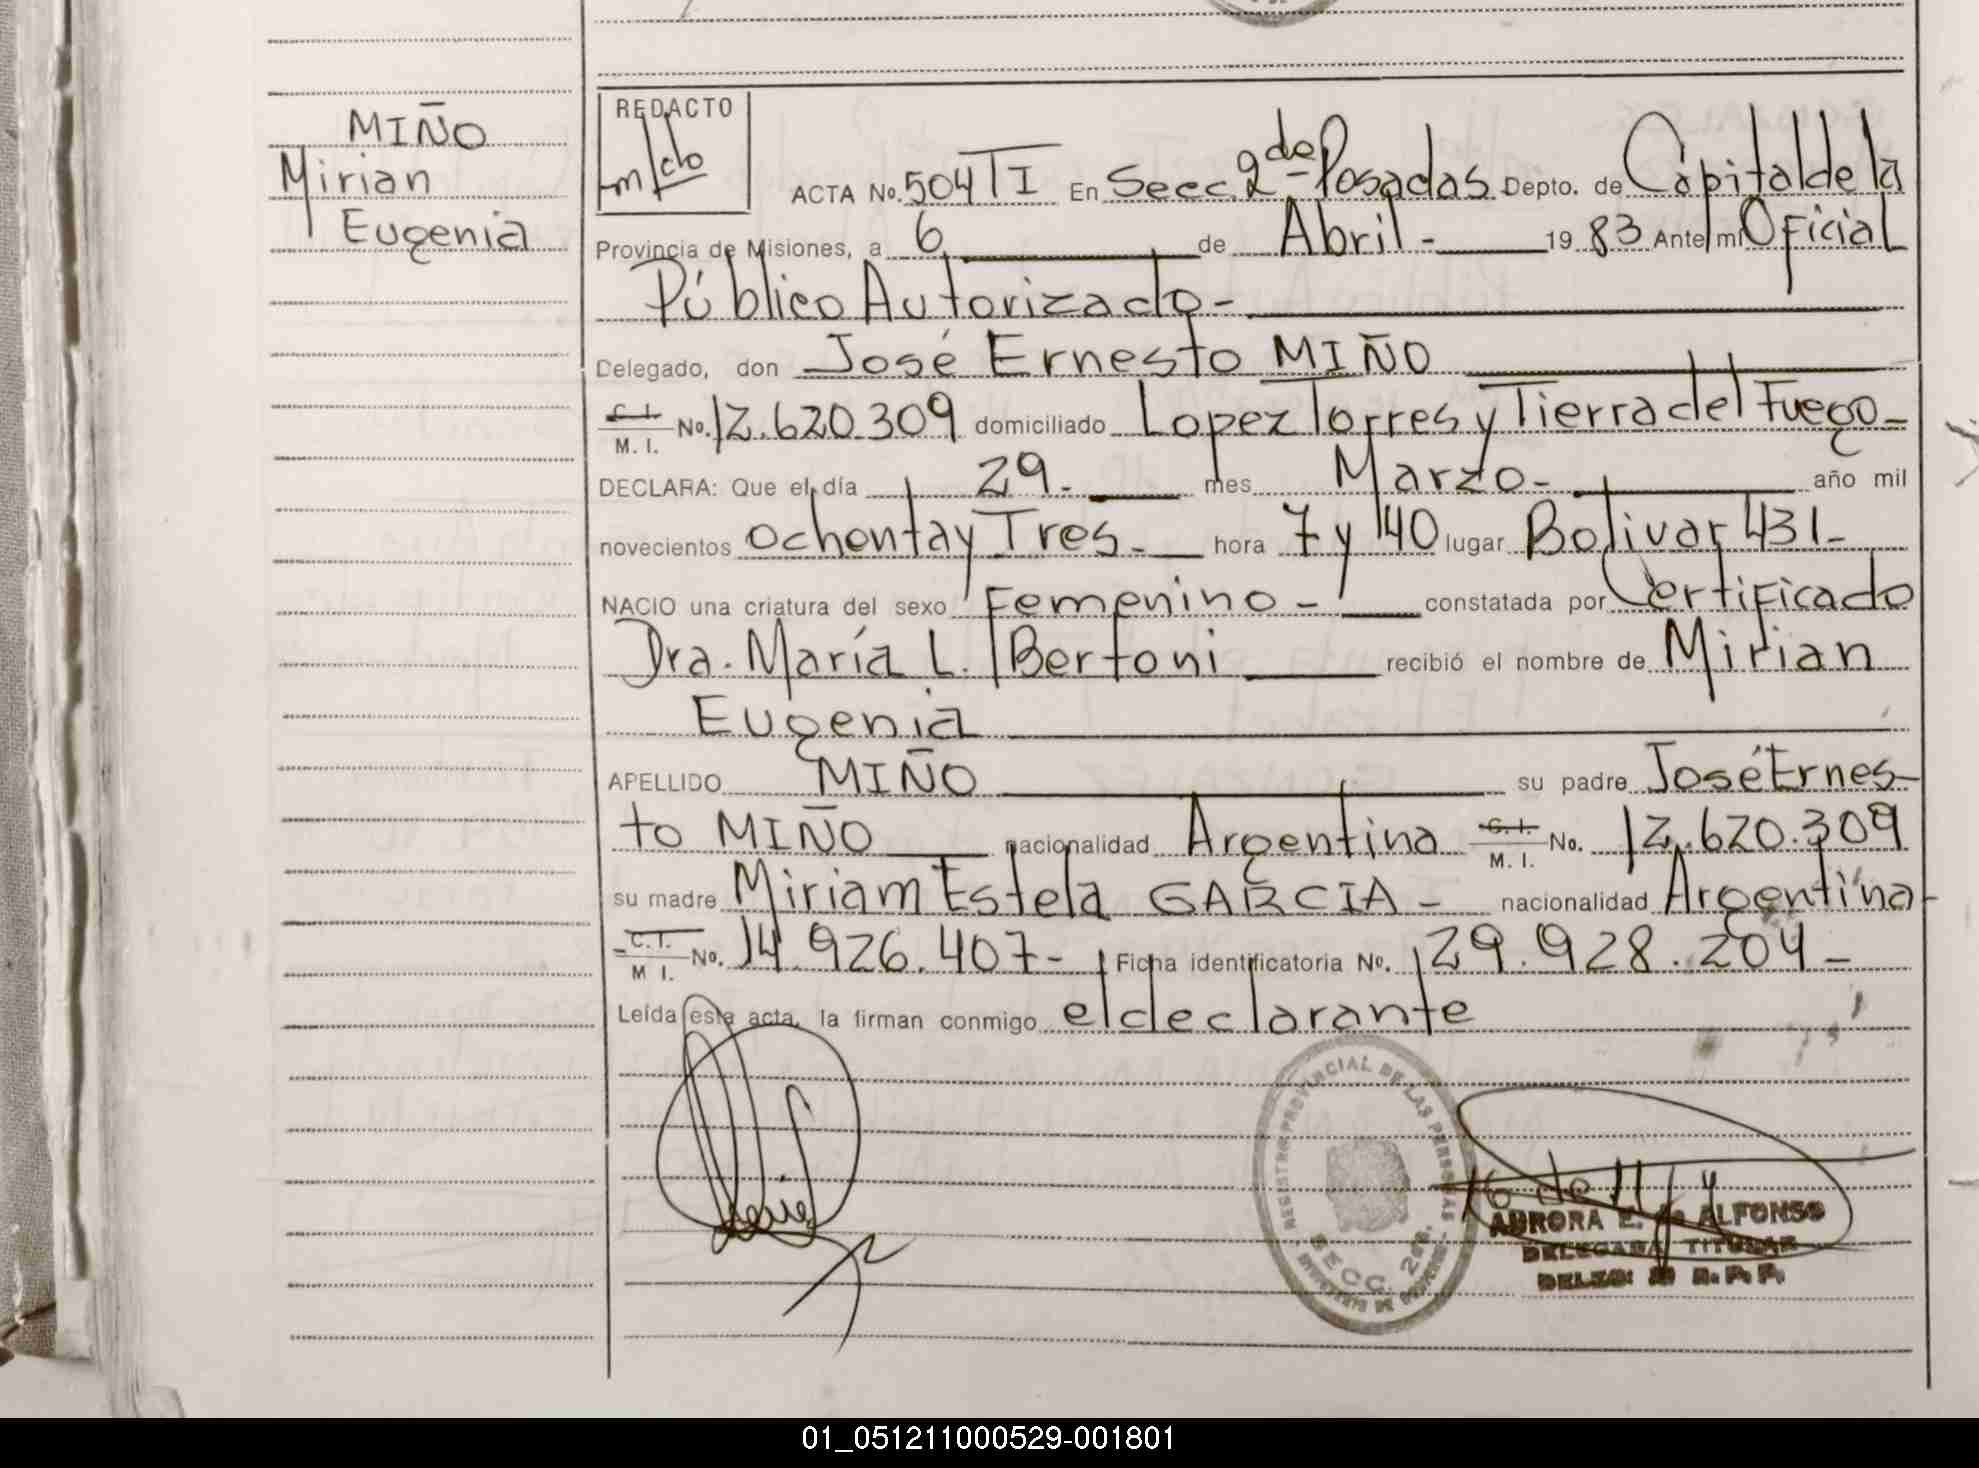 MIÑO
Mirian
Eugenia
REDACTO
ACTA No. 504 TI En Secc. 2da - Posadas Depto. de Capital de la
Provincia de Misiones, a 6 de Abril - 1983 Ante mí Oficial
Público Autorizado -
Delegado, don José Ernesto MIÑO
C. I. M. I. No. 12.620.309 domiciliado Lopez Torres y Tierra del Fuego -
DECLARA: Que el día 29 - mes Marzo - año mil
novecientos ochenta y Tres - hora 7 y 40 lugar Bolivar 431 -
NACIO una criatura del sexo Femenino - constatada por Certificado
Dra. María L. Bertoni recibió el nombre de Mirian
Eugenia
APELLIDO MIÑO su padre José Ernes-
to MIÑO nacionalidad Argentina C. I. M. I. No. 12.620.309
su madre Miriam Estela GARCIA - nacionalidad Argentina -
C. I. M I. No. 14.926.407 - Ficha identificatoria No. 29.928.204 -
Leída este acta, la firman conmigo el declarante
REGISTRO PROVINCIAL DE LAS PERSONAS
SECC. 2da.
AURORA E. de ALFONSO
DELEGADA TITULAR
R. P. P.
01_051211000529-001801